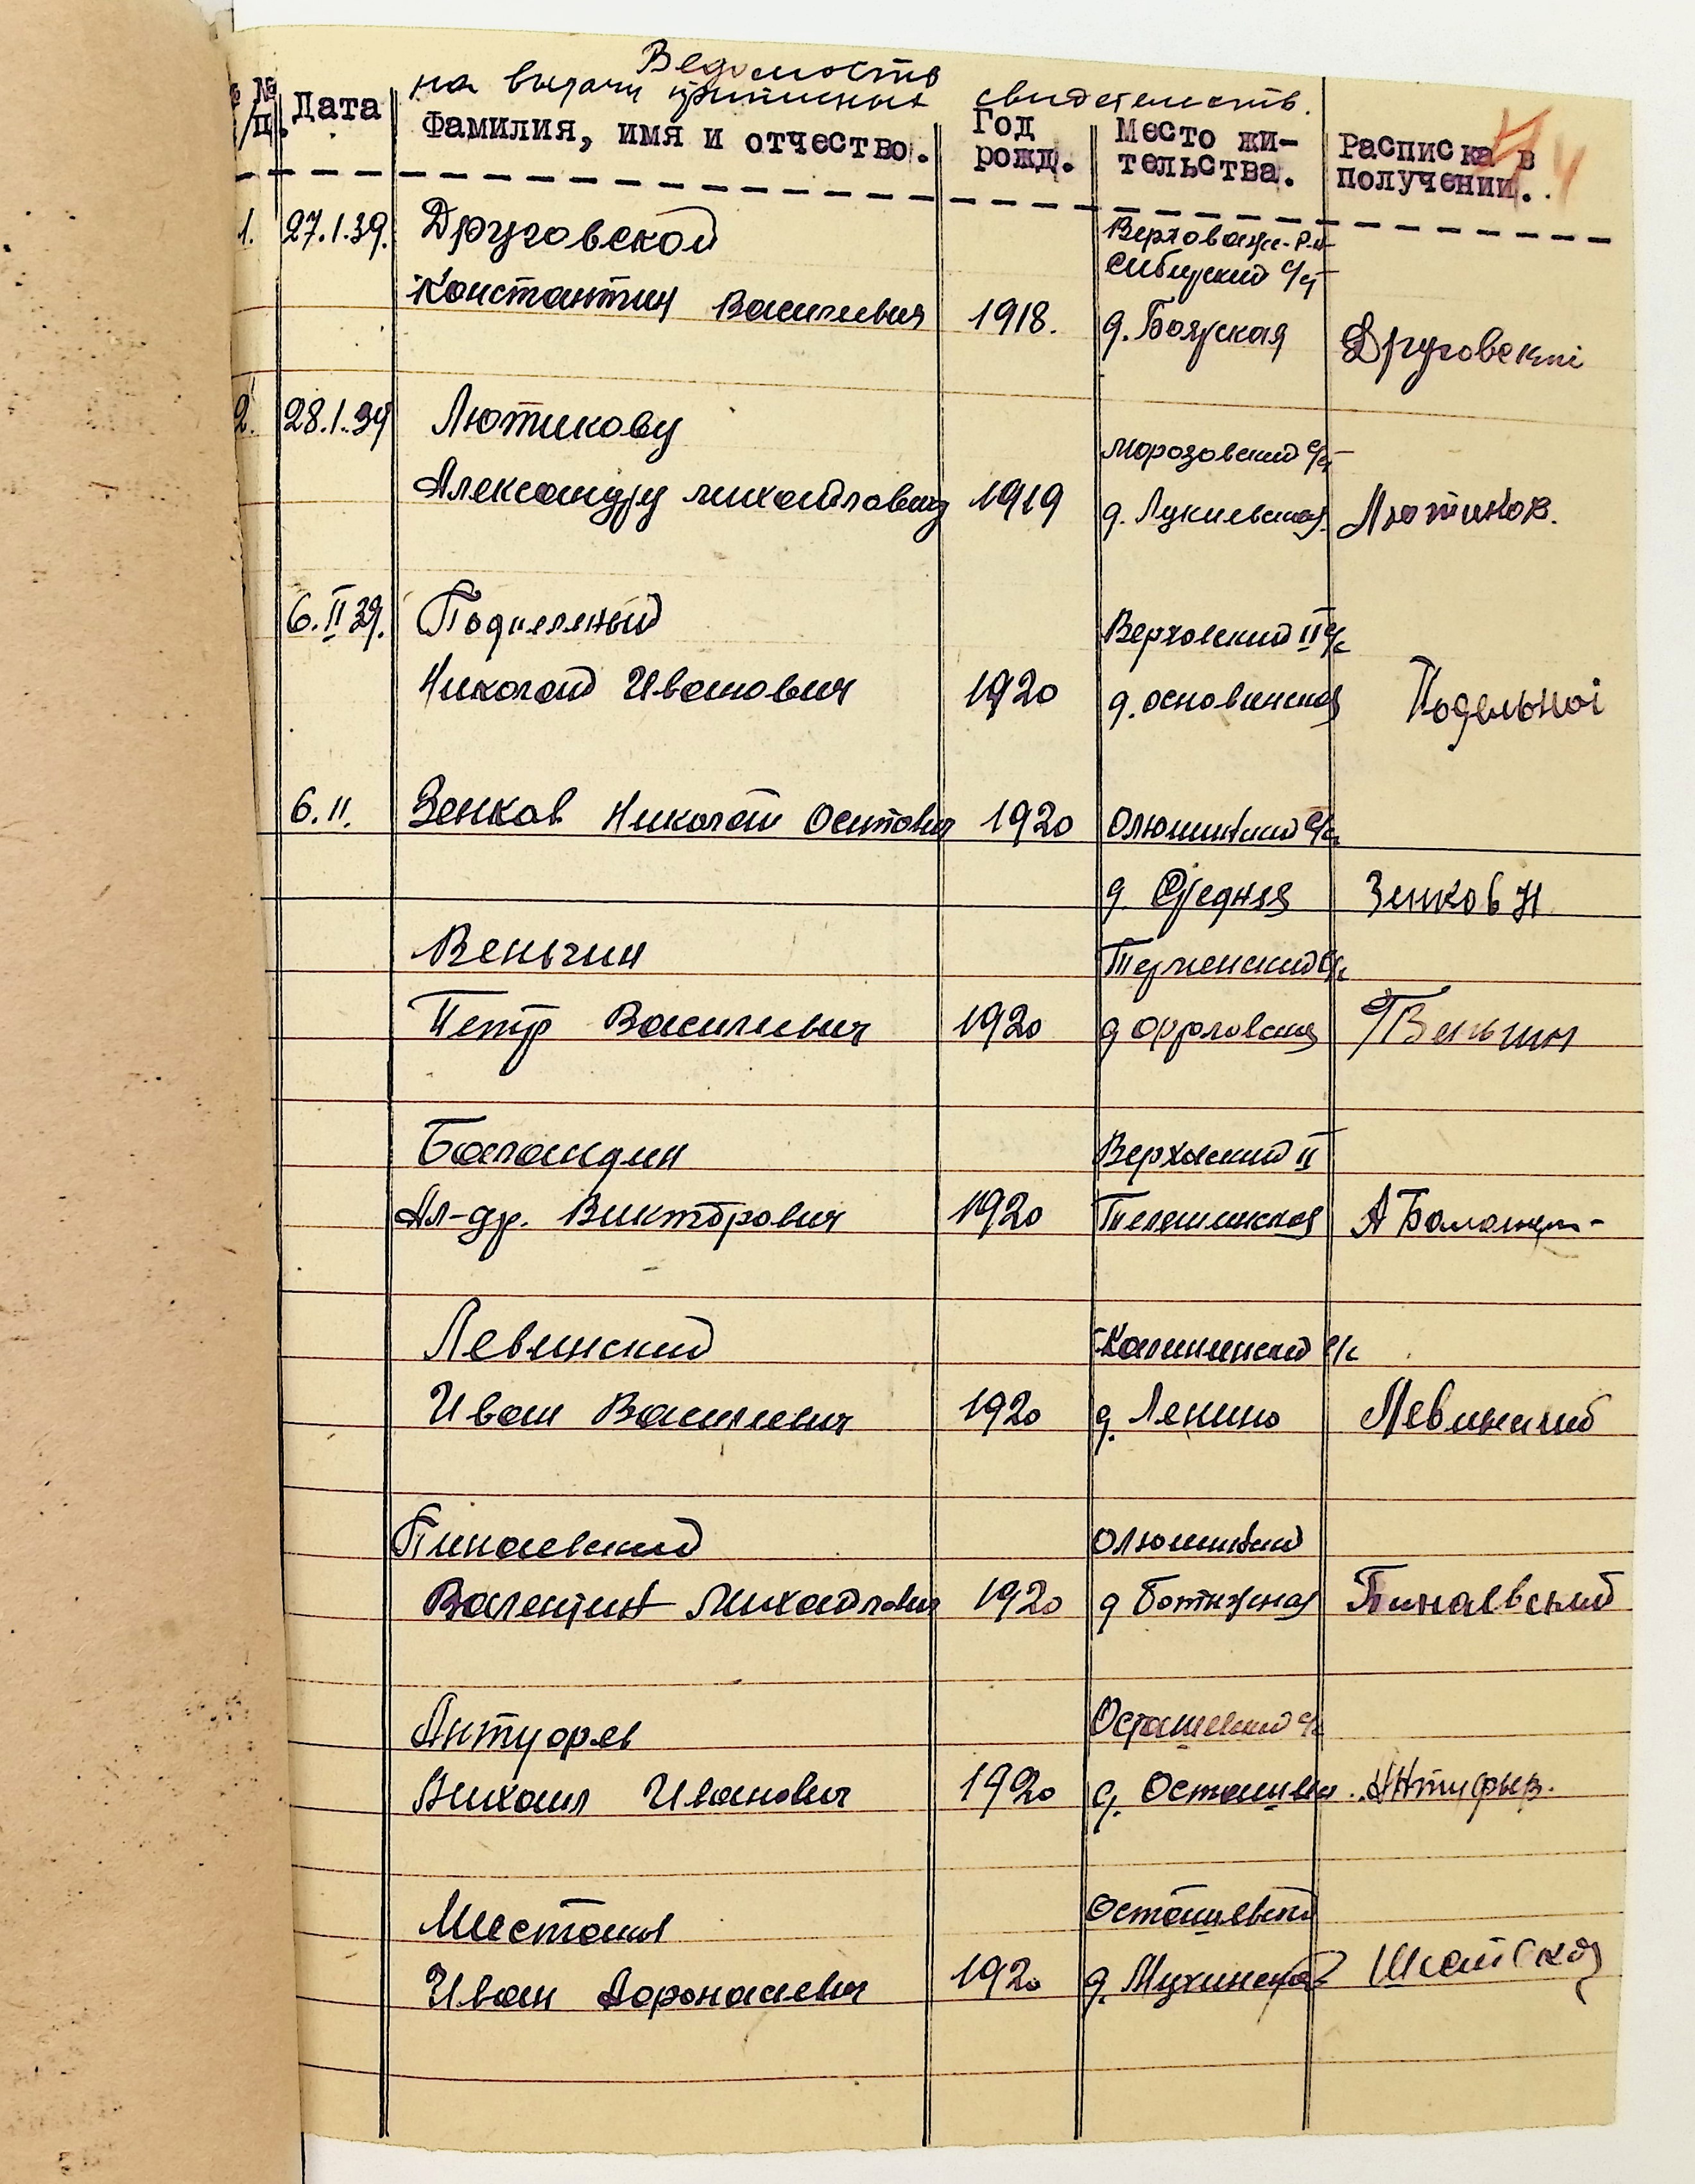 Ведомость
на выдачу приписных свидетельств.
№ № /п. Дата Фамилия, имя и отчество. Год рожд. Место жи- тельства. Расписка в получении.
1. 27.1.39. Друговской Верховажс. Р-н
Сибирский с/с
Константин Васильевич 1918. д. Боярская Друговскій
2. 28.1.39 Лютикову
Морозовский с/с
Александру Михайловичу 1919 д. Лукиевская Лютиков.
6.II 39. Подпельный Верховский II с/с
Николай Иванович 1920 д. основинская Подельной
6.II. Зенков Николай Осипович 1920 Олюшинский с/с
д. Средняя Зенков Н
Веньгин Терменский с/с
Петр Васильевич 1920 д Фроловская П Веньгин
Баландин Верховский II
Ал-др. Викторович 1920 Телешинская А Баландин
Левинский Калининский с/с
Иван Васильевич 1920 д. Ленино Левинский
Пинаевский Олюшинский
Валентин Михайлович 1920 д Ботыжная Пинаевский
Антуфьев Осташевский с/с
Михаил Иванович 1920 д. Осташево Антуфьев.
Осташевский
Иван Афонасьевич 1920 д. Мухинская